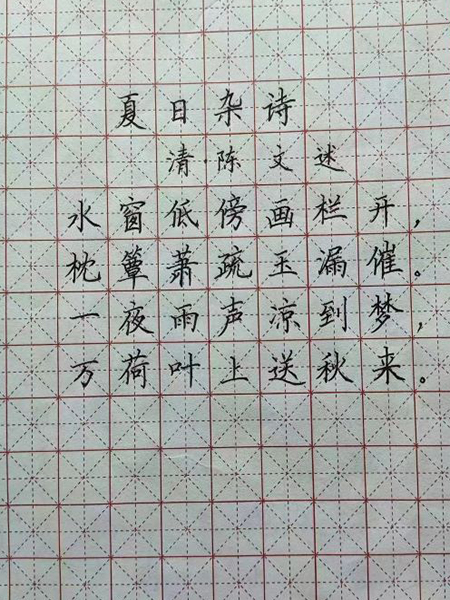 夏日杂诗
清·陈文述
水窗低傍画栏开，
枕簟萧疏玉漏催。
一夜雨声凉到梦，
万荷叶上送秋来。